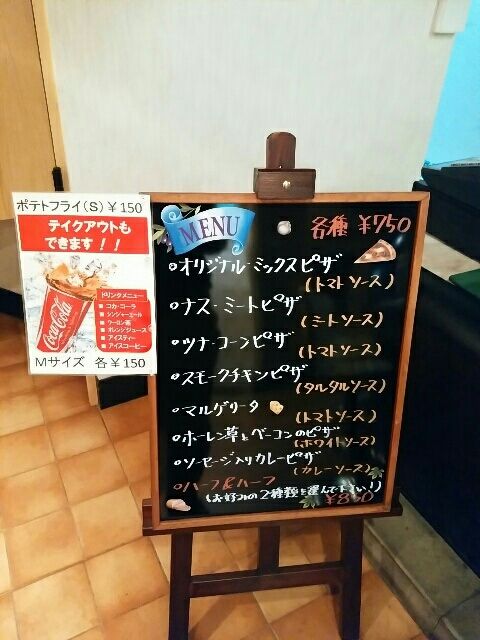 ポテトフライ(S)¥150
テイクアウトも
できます！！
Coca-Cola
ドリンクメニュー
コカ・コーラ
ジンジャーエール
ウーロン茶
オレンジジュース
アイスティー
アイスコーヒー
Mサイズ 各¥150
MENU
各種 ¥750
オリジナル・ミックスピザ
(トマトソース)
ナス・ミートピザ
(ミートソース)
ツナ・コーンピザ
(トマトソース)
スモークチキンピザ
(タルタルソース)
マルゲリータ
(トマトソース)
ホーレン草とベーコンのピザ
(ホワイトソース)
ソーセージ入りカレーピザ
(カレーソース)
ハーフ&ハーフ
(お好みの2種類を選んで下さい!)
¥850